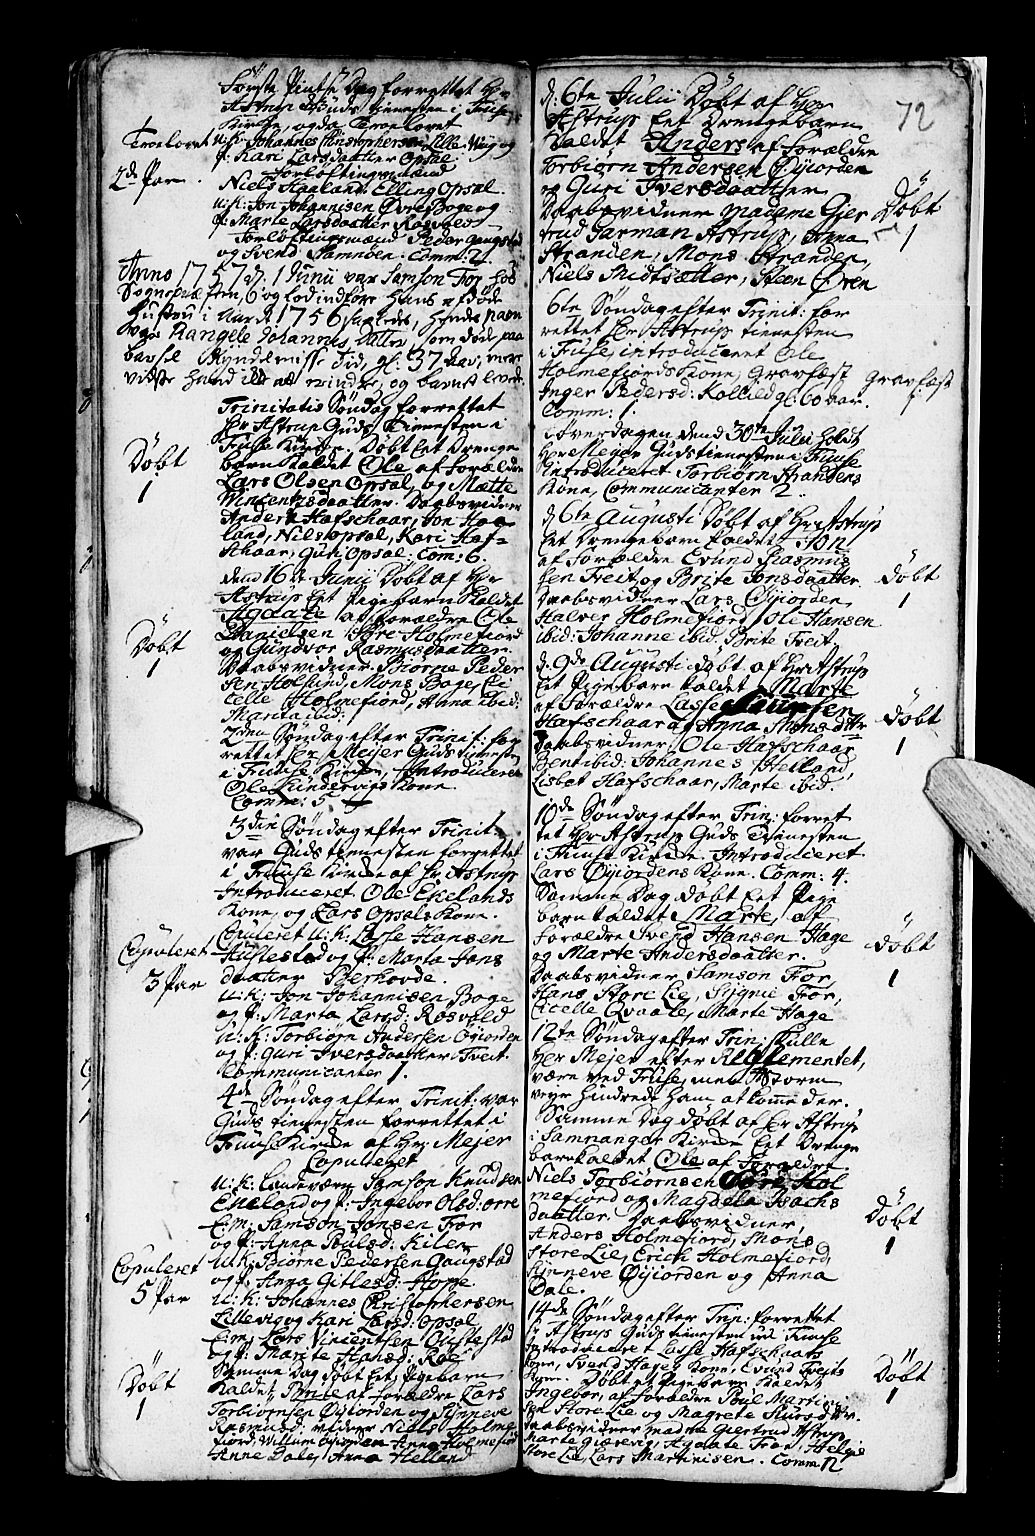 Første Pintse Dag forrettet Hr
Astrup Guds tienesten i Fuse
Kirke, og da Troelovet
Troelovet
2de Par
u: k: Johannes Christophersen Lille Wiig og
p: Kari Larsdaatter Opsal
Forloftingsmænd
Niels Haaland, Elling Opsal
u: k: Jon Johannisen Øvre Boge og
p: Marte Larsdaatter Rosvold
Forloftingsmænd Peder Gangstad
og Svend Samnøen. Comm: 21
Anno 1757 d: 1 Junii var Samson Før hos
Sognepræsten, og lod indføre Hans afdøde
Hustru i Aaret 1756 saaledes, hendes navn
var Rangele Johannis datter, som døde paa
barsel Kyndelmisse Tid, gl: 37 Aar, mere
vidste hand ikke at erindre, og barnet levede.
Trinitatis Søndag forrettet
Hr Astrup Guds Tienesten i
Fuuse Kirke. Døbt Eet Drenge
Døbt
1
barn Kaldet Ole af forældre
Lars Olsen Opsal, og Mætte
Wincentsdaatter. Daabsvidner
Anders Hafschaar, Jon Haa
land, Niels Opsal, Kari Haf-
schaar, Guri Opsal: Com: 6.
dend 16de Junii Døbt af Hr
Astrup Eet Pigebarn Kaldet
Agaate af forældre Ole
Døbt
1
Danielsen Søre Holmefiord
og Gundvor Rasmusdaatter.
Daabsvidner. Biørne Peder
sen Holsund, Mons Boge, Ci
celle Holmefiord, Anna ibid:
Marita ibid:
2den Søndag efter Trinit: for
rettet Hr Meijer Guds tienesten
i Fuuse Kirke, Introduceret
Ole Lundervigs Kone
Comm: 5
3die Søndag efter Trinit:
var Guds tienesten forrettet
i Fuuse Kirke af Hr Astrup
Introduceret Ole Ekelands
Kone, og Lars Opsals Kone.
Copuleret
3 Par
Copuleret u: k: Lasse Hansen
Huftestad og p: Marta Jons
daatter Bierkovde.
u: k: Jon Johannisen Boge
og p: Marta Larsd: Rosvold
u: k: Torbiørn Andersen Øyiorden
og p: Guri Iversdaatter Tveit.
Communicanter 1.
4de Søndag efter Trinit: var
Guds tienesten forrettet i
Fuuse Kirke af Hr: Meijer
Copuleret
u: k: Samson Knudsen
Ekeland og p: Ingebor Olsd: orre
E: m: Samson Jonsen Før
og p: Anna Poulsd: Kilen
Copuleret
5 Par
u: k: Biørne Pedersen Gangstad
og p: Anna Gitlesd: Hope
u: k: Johannes Christophersen
Lillevig og Kari Larsd: Opsal
E: m: Lars Vincentsen Ouftestad
og p: Marite Hansd: Roe
Døbt
1
Samme Dag Døbt Eet Pigebarn
Kaldet, Brite af forældre Lars
Torbiørnsen Øyiorden og Synneve
Rasmusd: vidner Niels Holme
fiord, Willum Øyiorden Anna Holmefiord
Anne Dale, Anna Helland
72
d: 6te Julii Døbt af Hr
Astrup Eet Drengebarn
Kaldet Anders af Forældre
Torbiørn Andersen Øyiorden
og Guri Iversdaatter
Døbt
1
Daabsvidner Madame Gier
trud Jarman Astrup, Anna
Stranden, Mons Stranden,
Niels Midtsætter, Steen Øren
6te Søndag efter Trinit: for
rettet Hr Astrup tienesten
i Fuse, introduceret Ole
Holmefiords Kone, Gravfæst
Gravfæst
1
Inger Pedersd: Kollied gl: 60 aar.
Comm: 1.
Løverdagen dend 30te Julii holdt
Hr Meijer Guds tienesten i Fuuse
Introduceret Torbiørn Strandens
Kone, Communicanter 2.
d: 6te Augusti Døbt af Hr Astrup
Et Drengebarn kaldet Jon
af Forældre Evind Rasmus
Døbt
1
sen Tveit, og Brite Jonsdaatter
Daabsvidner Lars Øyiorden,
Halver Holmefiord, Ole Hansen
ibid: Johanne ibid, Brite Tveit
d: 9de Augusti døbt af Hr Astrup
Eet Pigebarn kaldet Marte
af Forældre Lasse
Døbt
1
Hafschaar og Anna Monsdttr
Daabsvidner, Ole Hafschaar
Bent ibid: Johannes Helland,
Lisbet Hafschaar, Marte ibid.
10de Søndag efter Trin: forret
tet Hr Astrup Guds Tienesten
i Fuuse Kirke. Introduceret
Lars Øyiordens Kone. Comm: 4.
Samme Dag Døbt Eet Pige
barn kaldet Marte, af
Forældre Svend Hansen Hage
Døbt
1
og Marte Andersdaatter.
Daabsvidner Samson Før,
Hans Store Lie, Sygnie Før,
Cicelle Qvaale, Marte Hage
12te Søndag efter Trin: skulle
Hr Mejer efter Reglementet,
være ved Fuse, men Storm
veyr hindrede ham at komme der.
Samme Dag døbt af Hr Astrup
i Samnanger Kirke Eet Drenge
barn kaldet Ole af Forældre
Niels Torbiørnsen Søre Hol
mefiord og Magdela Isachs
Døbt
1
daatter. Daabsvidner,
Anders Holmefiord, Mons
Store Lie, Erich Holmefiord,
Synneve Øyiorden og Anna
Dale.
14de Søndag efter Trin: forrettet
Hr Astrup Guds tienesten ud Fuuse
Introduceret Lasse Hafschaars
Kone, Svend Hages Kone, Evind Tveits
Døbt
1
Kone. Døbt et Pigebarn kaldet
Ingebor, af forældre Poul Martini
sen Store Lie og Magrete Siursdttr.
Daabsvidner Madme Giertrud Astrup,
Marte Giæreng, Agaate Før, Helge
Store Lie, Lars Martinisen. Comm 12